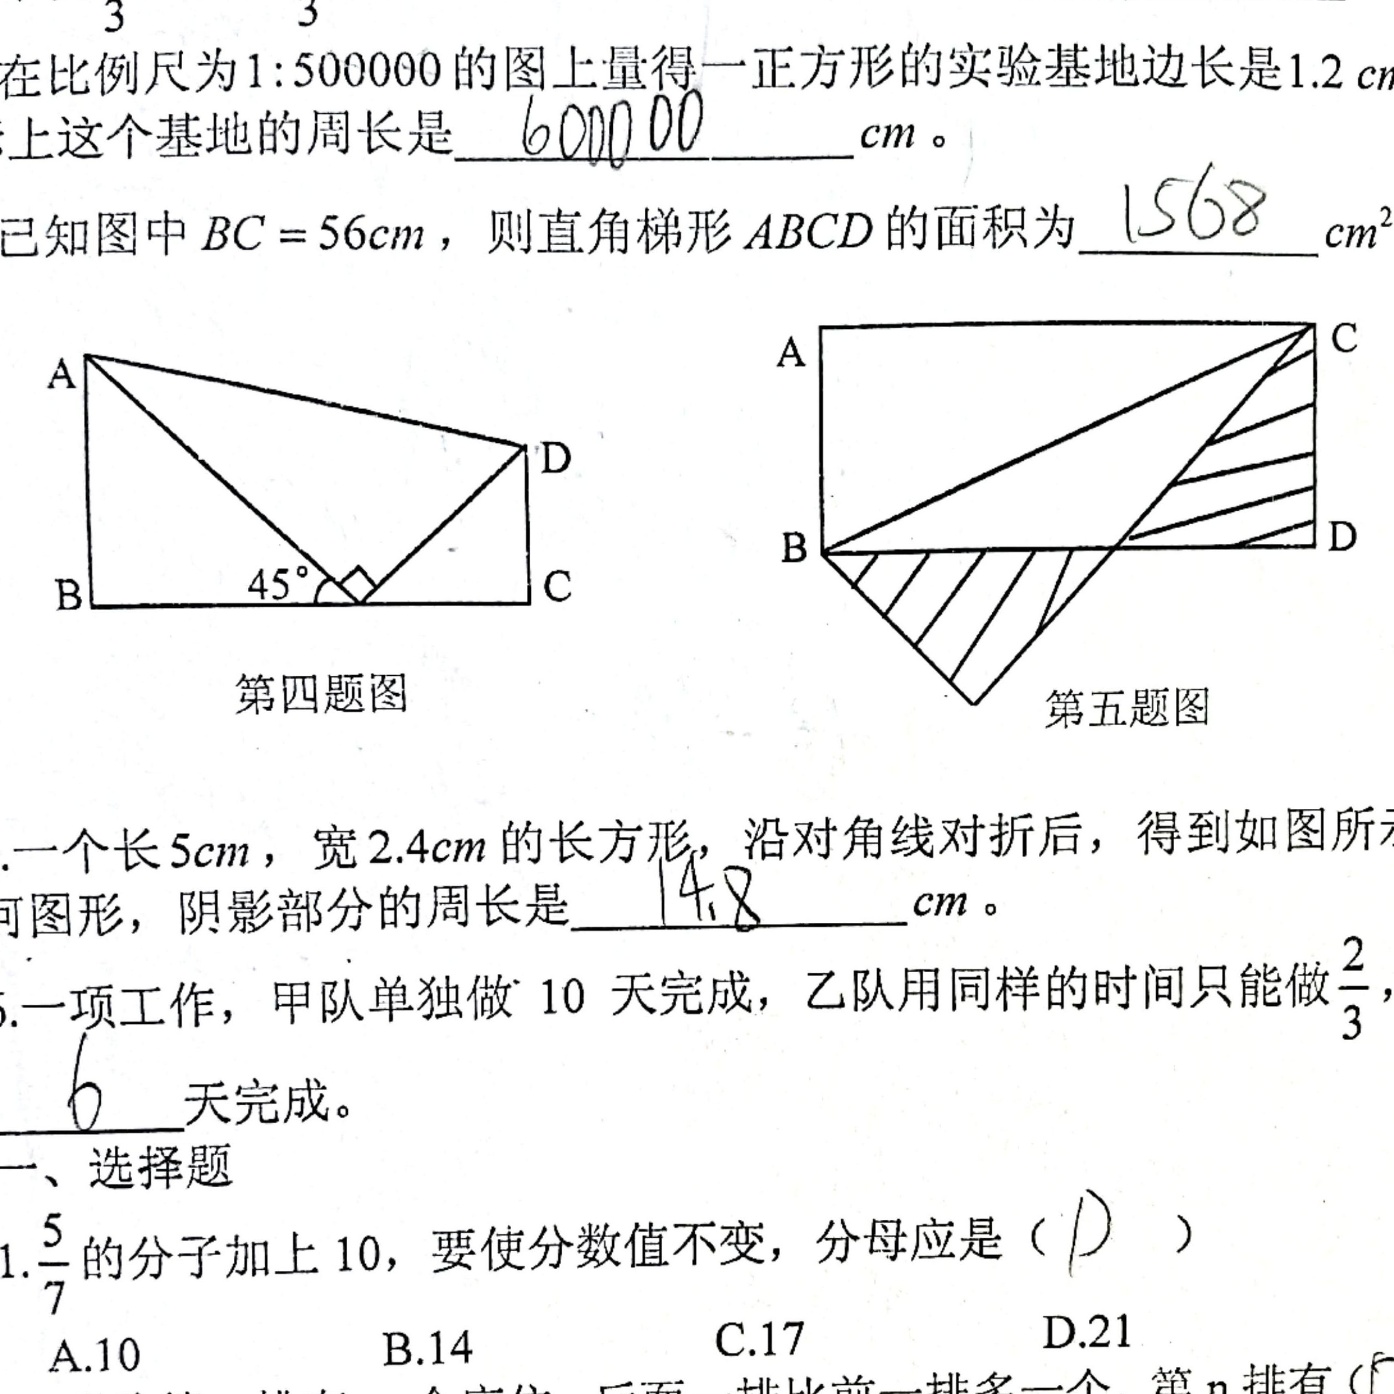 3 3
在比例尺为1:500000的图上量得一正方形的实验基地边长是1.2 cm
上这个基地的周长是 6000000 cm。
已知图中 BC = 56cm，则直角梯形 ABCD 的面积为 1568 cm²
A D B C 45°
A C B D
第四题图 第五题图
.一个长5cm，宽2.4cm的长方形，沿对角线对折后，得到如图所示
何图形，阴影部分的周长是 14.8 cm。
6.一项工作，甲队单独做 10 天完成，乙队用同样的时间只能做2/3，
6 天完成。
一、选择题
1.5/7的分子加上10，要使分数值不变，分母应是（ D ）
A.10 B.14 C.17 D.21
排比前一排多一个，第n排有（